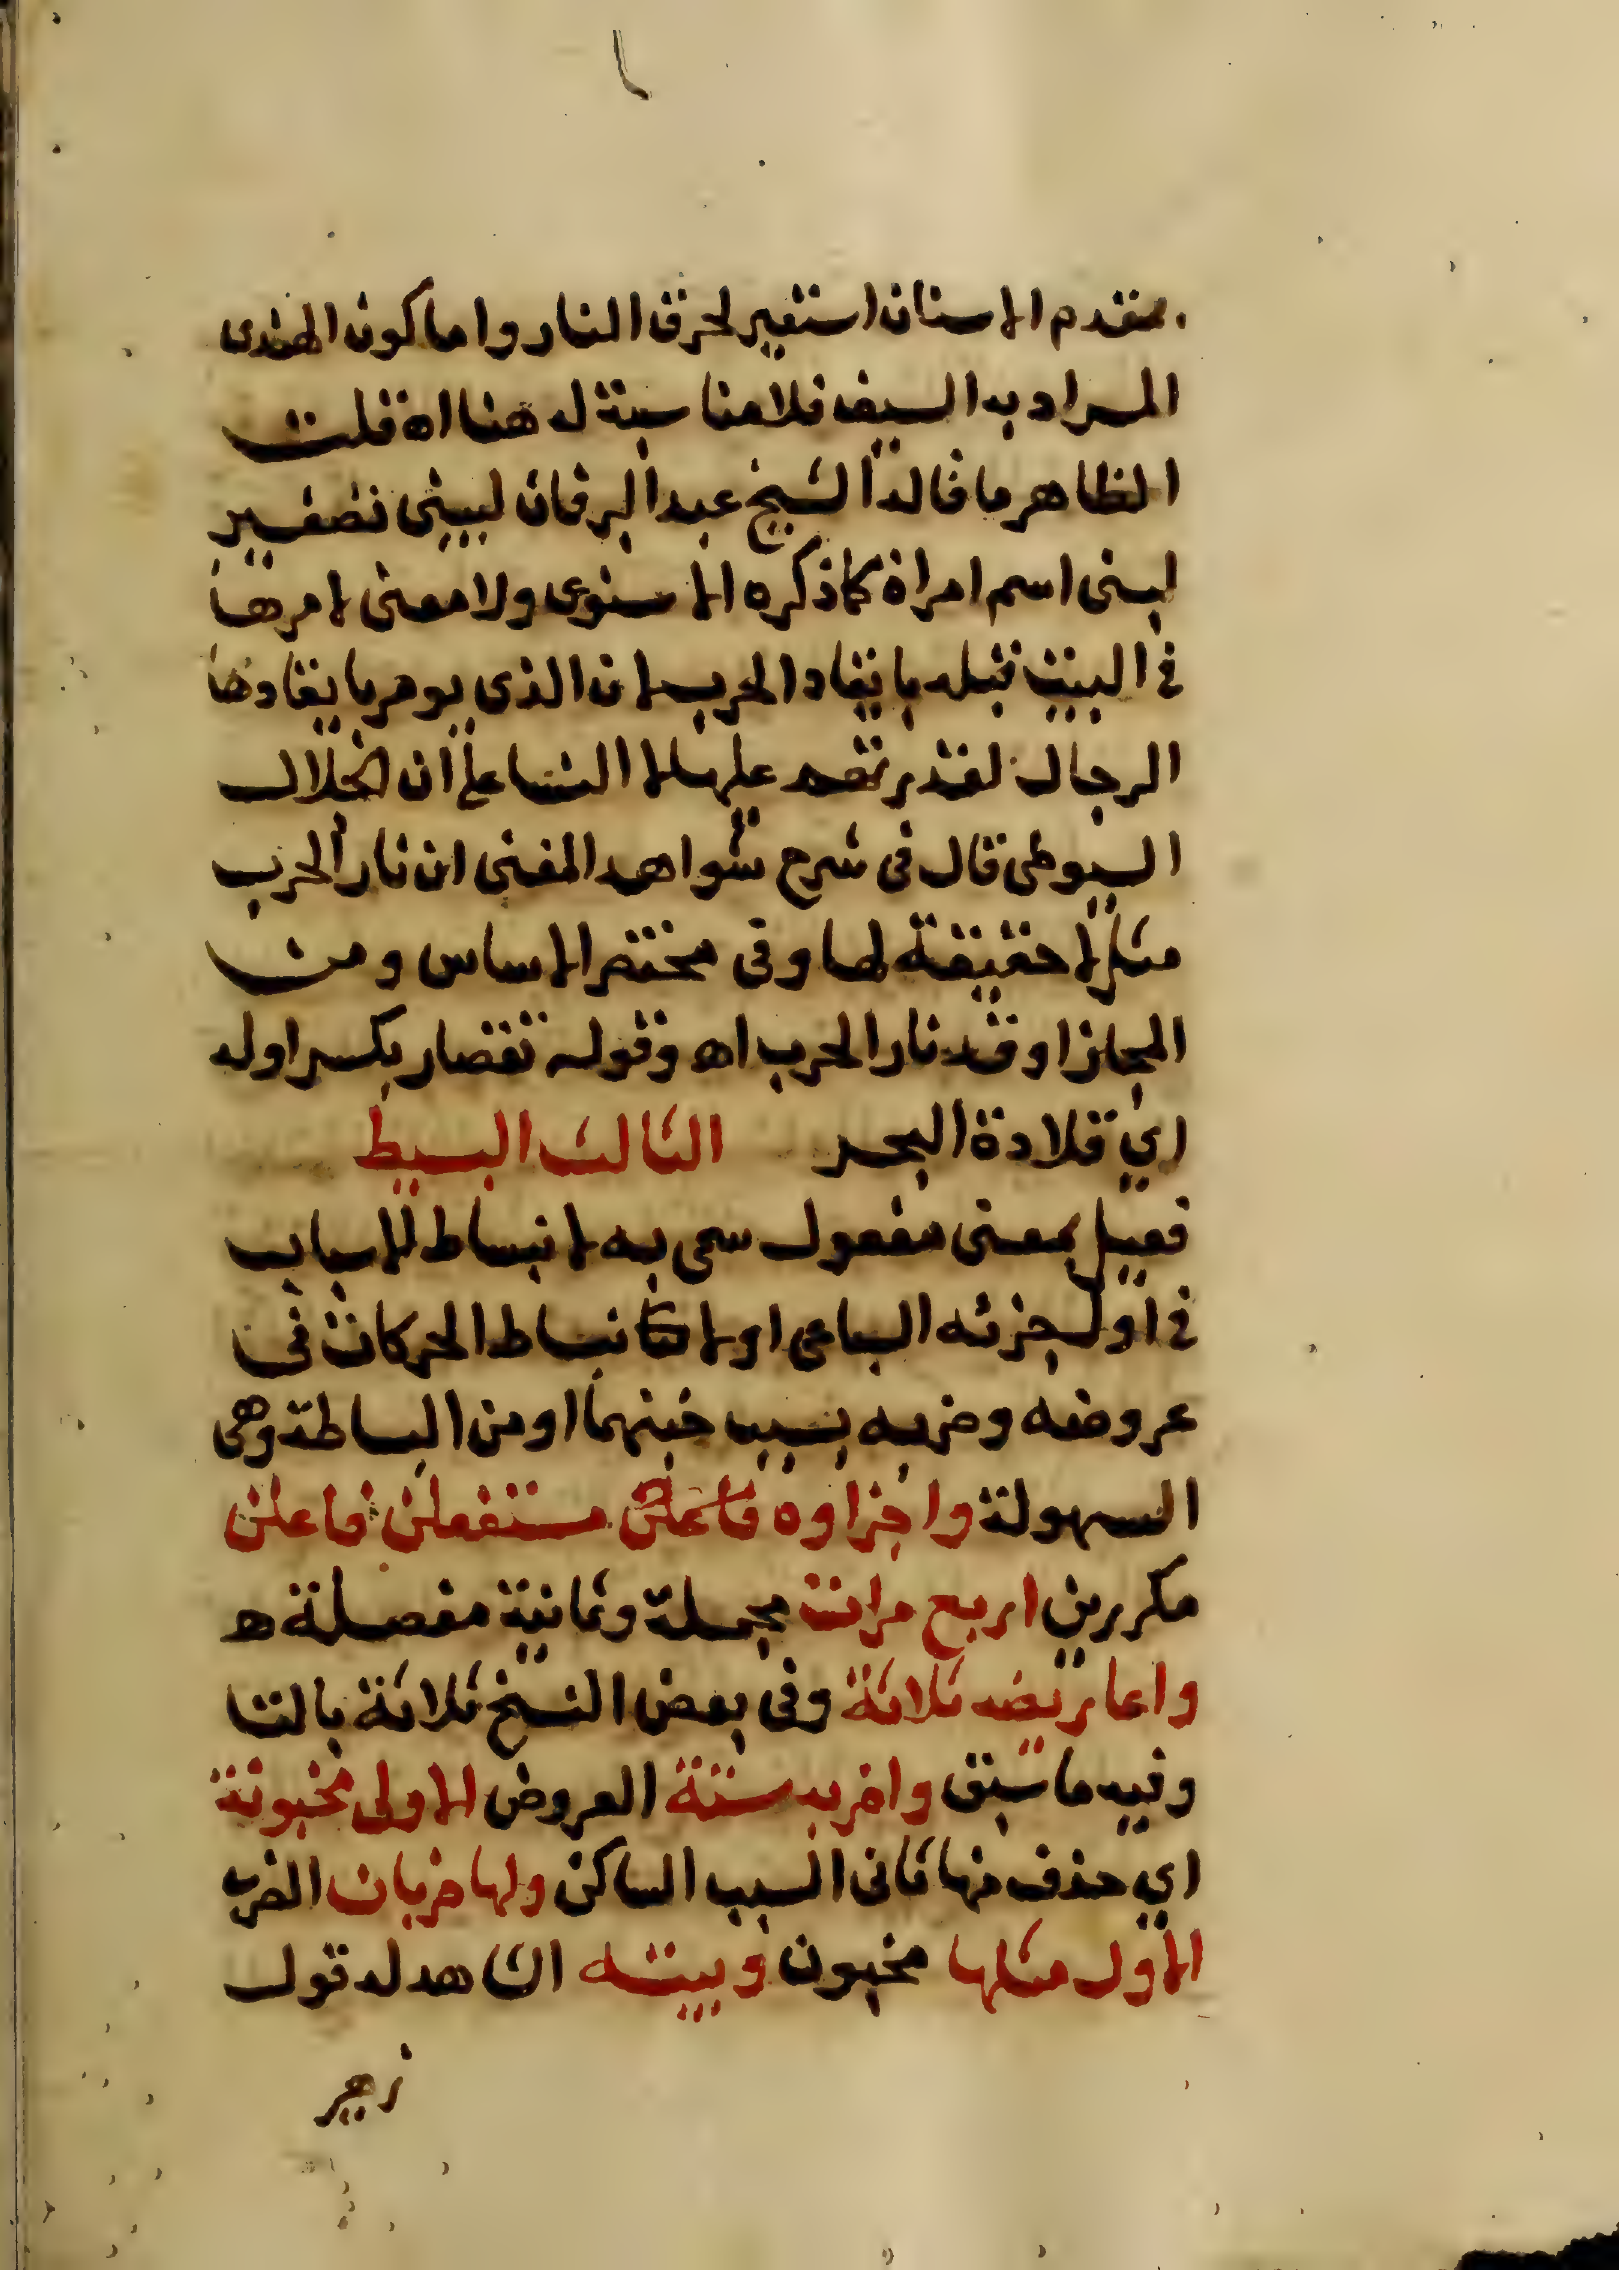 بمقدم الاسنان استعير لحرق النار واما كون الهندى
المراد به السيف فلا مناسبة له هنا اه قلت
الظاهر ما قاله الشيخ عبد البرفان لبينى تصغير
لبنى اسم امراة كما ذكره الاسنوى ولا معنى لامرها
فى البيت قبله بايقاد الحرب لان الذى يومر بايقادها
الرجال لقدرتهم عليها لا النسا على ان الجلال
السيوطى قال فى شرح شواهد المغنى ان نار الحرب
مثل لا حقيقة لها وفى مختصر الاساس ومن
المجاز اوقد نار الحرب اه وقوله تقصار بكسر اوله
اي قلادة البحر الثالث البسيط
فعيل بمعنى مفعول سمى به لانبساط الاسباب
فى اول جزئه السباعى او لانبساط الحركات فى
عروضه وضربه بسبب خبنهما او من البساطة وهى
السهولة واجزاوه مستفعلن فاعلن
مكررين اربع مرات مجملة وثمانية مفصلة ه
واعاريضه ثلاثة وفى بعض النسخ ثلاثة بالتا
وفيه ما سبق واضربه ستة العروض الاولى مخبونة
اي حذف منها ثانى السبب الساكن ولها ضربان الضرب
الاول مثلها مخبون وبيته الشاهد له قول
زهير